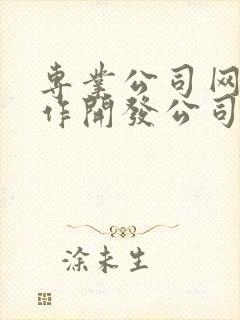 専業公司网
作開發公司
涂未生